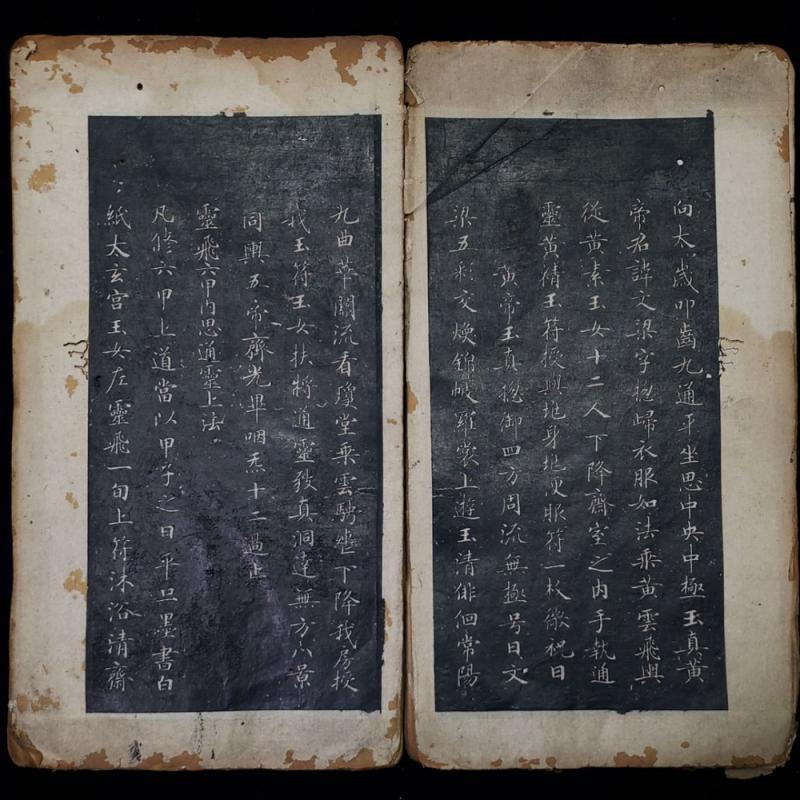 向太歲叩齒九通平坐思中央中極玉真黃
帝君諱文梁字揔歸衣服如法乘黃雲飛輿
從黃素玉女十二人下降齋室之內手執通
靈黃精玉符授與地身地便服符一枚微祝曰
黃帝玉真揔御四方周流無極号曰文
梁五彩交煥錦帔羅裳上遊玉清俳佪常陽
九曲華關流看瓊堂乘雲騁轡下降我房授
我玉符玉女扶將通靈致真洞達無方八景
同輿五帝齊光畢咽炁十二過止
靈飛六甲內思通靈上法
凡修六甲上道當以甲子之日平旦墨書白
紙太玄宮玉女左靈飛一旬上符沐浴清齋